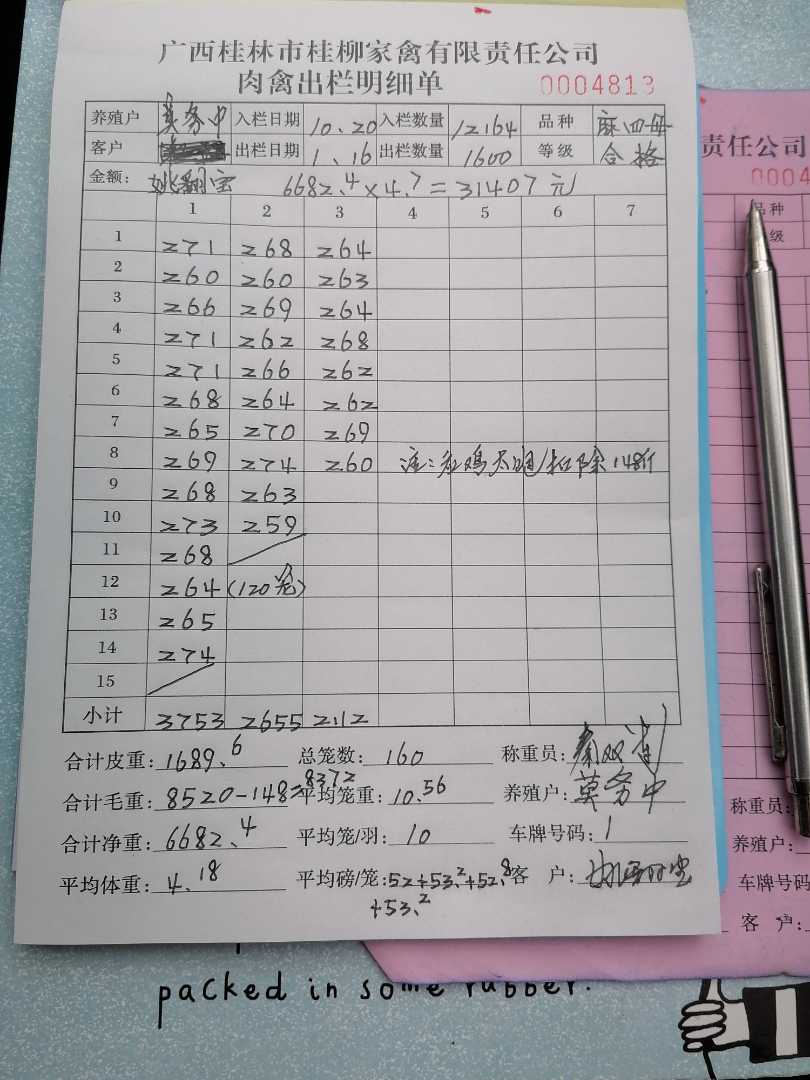 广西桂林市桂柳家禽有限责任公司
肉禽出栏明细单 0004813
养殖户 莫务中 入栏日期 10.20 入栏数量 12164 品种 麻四母
客户 出栏日期 1.16 出栏数量 1600 等级 合格
金额: 姚翻宝 6682.4×4.7=31407元
1 2 3 4 5 6 7
1 271 268 264
2 260 260 263
3 266 269 264
4 271 262 268
5 271 266 262
6 268 264 262
7 265 270 269
8 269 274 260 注: 扣除148斤
9 268 263
10 273 259
11 268
12 264 (120笼)
13 265
14 274
15
小计 3753 2655 2112
合计皮重: 1689.6 总笼数: 160 称重员:
合计毛重: 8520-148=8372 平均笼重: 10.56 养殖户: 莫务中
合计净重: 6682.4 平均笼/羽: 10 车牌号码: 1
平均体重: 4.18 平均磅/笼: 52+53.2+52.8 客 户:
+53.2
责任公司
0004
品种
级
称重员:
养殖户:
车牌号码
客 户:
packed in some rubber.